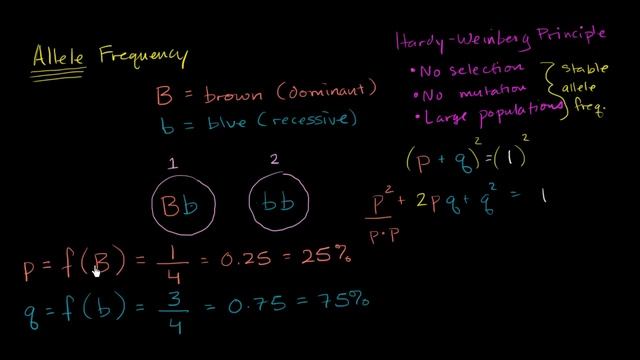 Allele Frequency
B = brown (dominant)
b = blue (recessive)
1
2
Bb
bb
p = f(B) = 1/4 = 0.25 = 25%
q = f(b) = 3/4 = 0.75 = 75%
Hardy-Weinberg Principle
• No selection
• No mutation
• Large populations
stable
allele
freq.
(p + q)² = (1)²
p² + 2pq + q² = 1
p•p